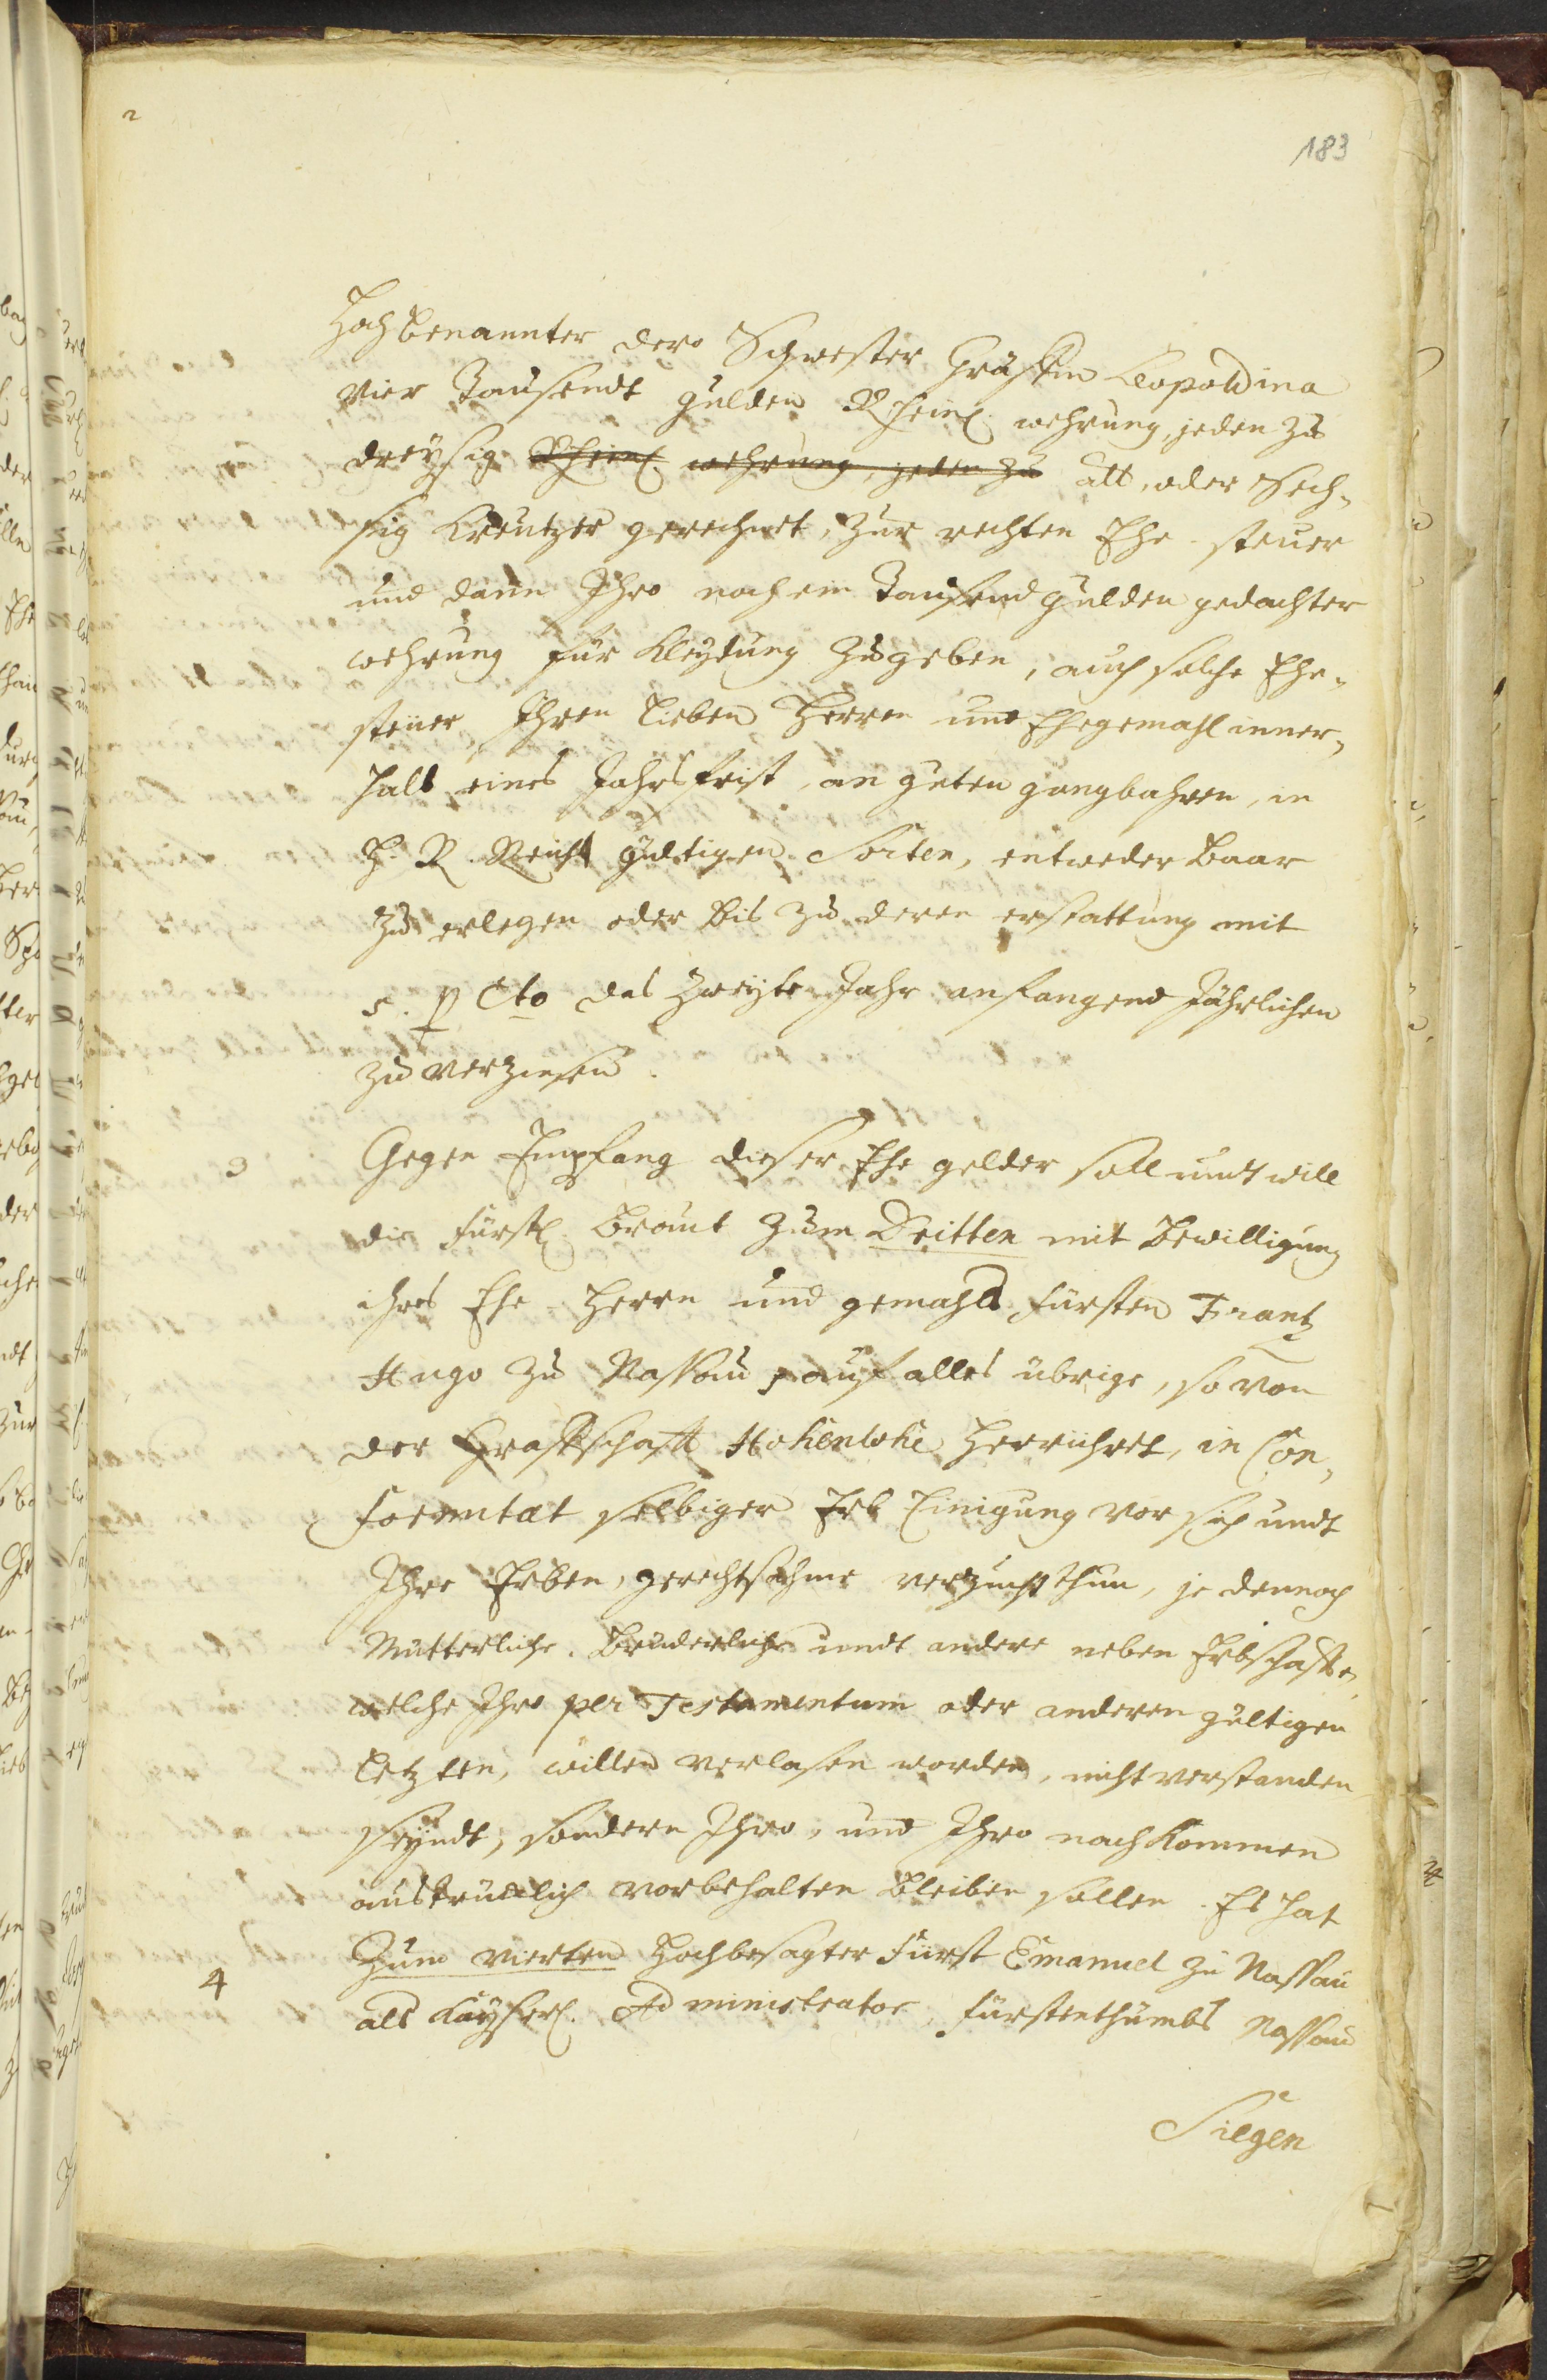 2
183
Hochbenannter dero Schwester Gräffin Leopoldina
vier Tausendt gulden Rheinl. wehrung, jeden zu
dreyßig Rheinl. wehrung, jeden zu alt, oder Sech¬
sig Kreutzer gerechnet, zur rechten Ehe-steuer
und dann Ihro noch ein Tausend gulden gedachter
wehrung für Kleydung zu geben, auch solche Ehe¬
steuer, Ihren lieben Herren und Ehegemahl inner¬
halb eines Jahrsfrist, an guten gangbahren, in
H. R. Reich gültigen Sorten, entweder baar
zu erlegen oder bis zu deren erstattung mit
5. p Cto das zweyte Jahr anfangend Jährlichen
zu verzinsen.
3
Gegen Empfang dieser Ehe gelder soll undt will
die fürstl. Braut zum Dritten mit Bewilligung
ihres Ehe-Herrn und gemahls fürsten Frantz
Hugo zu Nassau p auf alles übrige, so von
der Graffschafft Hohenlohe herrühret, in Con¬
formitat selbiger Erb Einigung vor sich undt
Ihre Erben, gerechtsahme verzucht thun, je dennoch
Mütterliche, Brüderliche undt andere neben Erbschaffte,
welche Ihro per Testamentum oder anderen gültigen
letzten, willen verlasen worden, nicht verstanden
seyndt, sondern Ihro, und Ihro nachkommen
austrücklich vorbehalten bleiben sollen. Es hat
4
Zum vierten Hochbesagter Fürst Emanuel zu Nassau
als Kayserl. Administrator, fürstenthumbs Nassau
Siegen